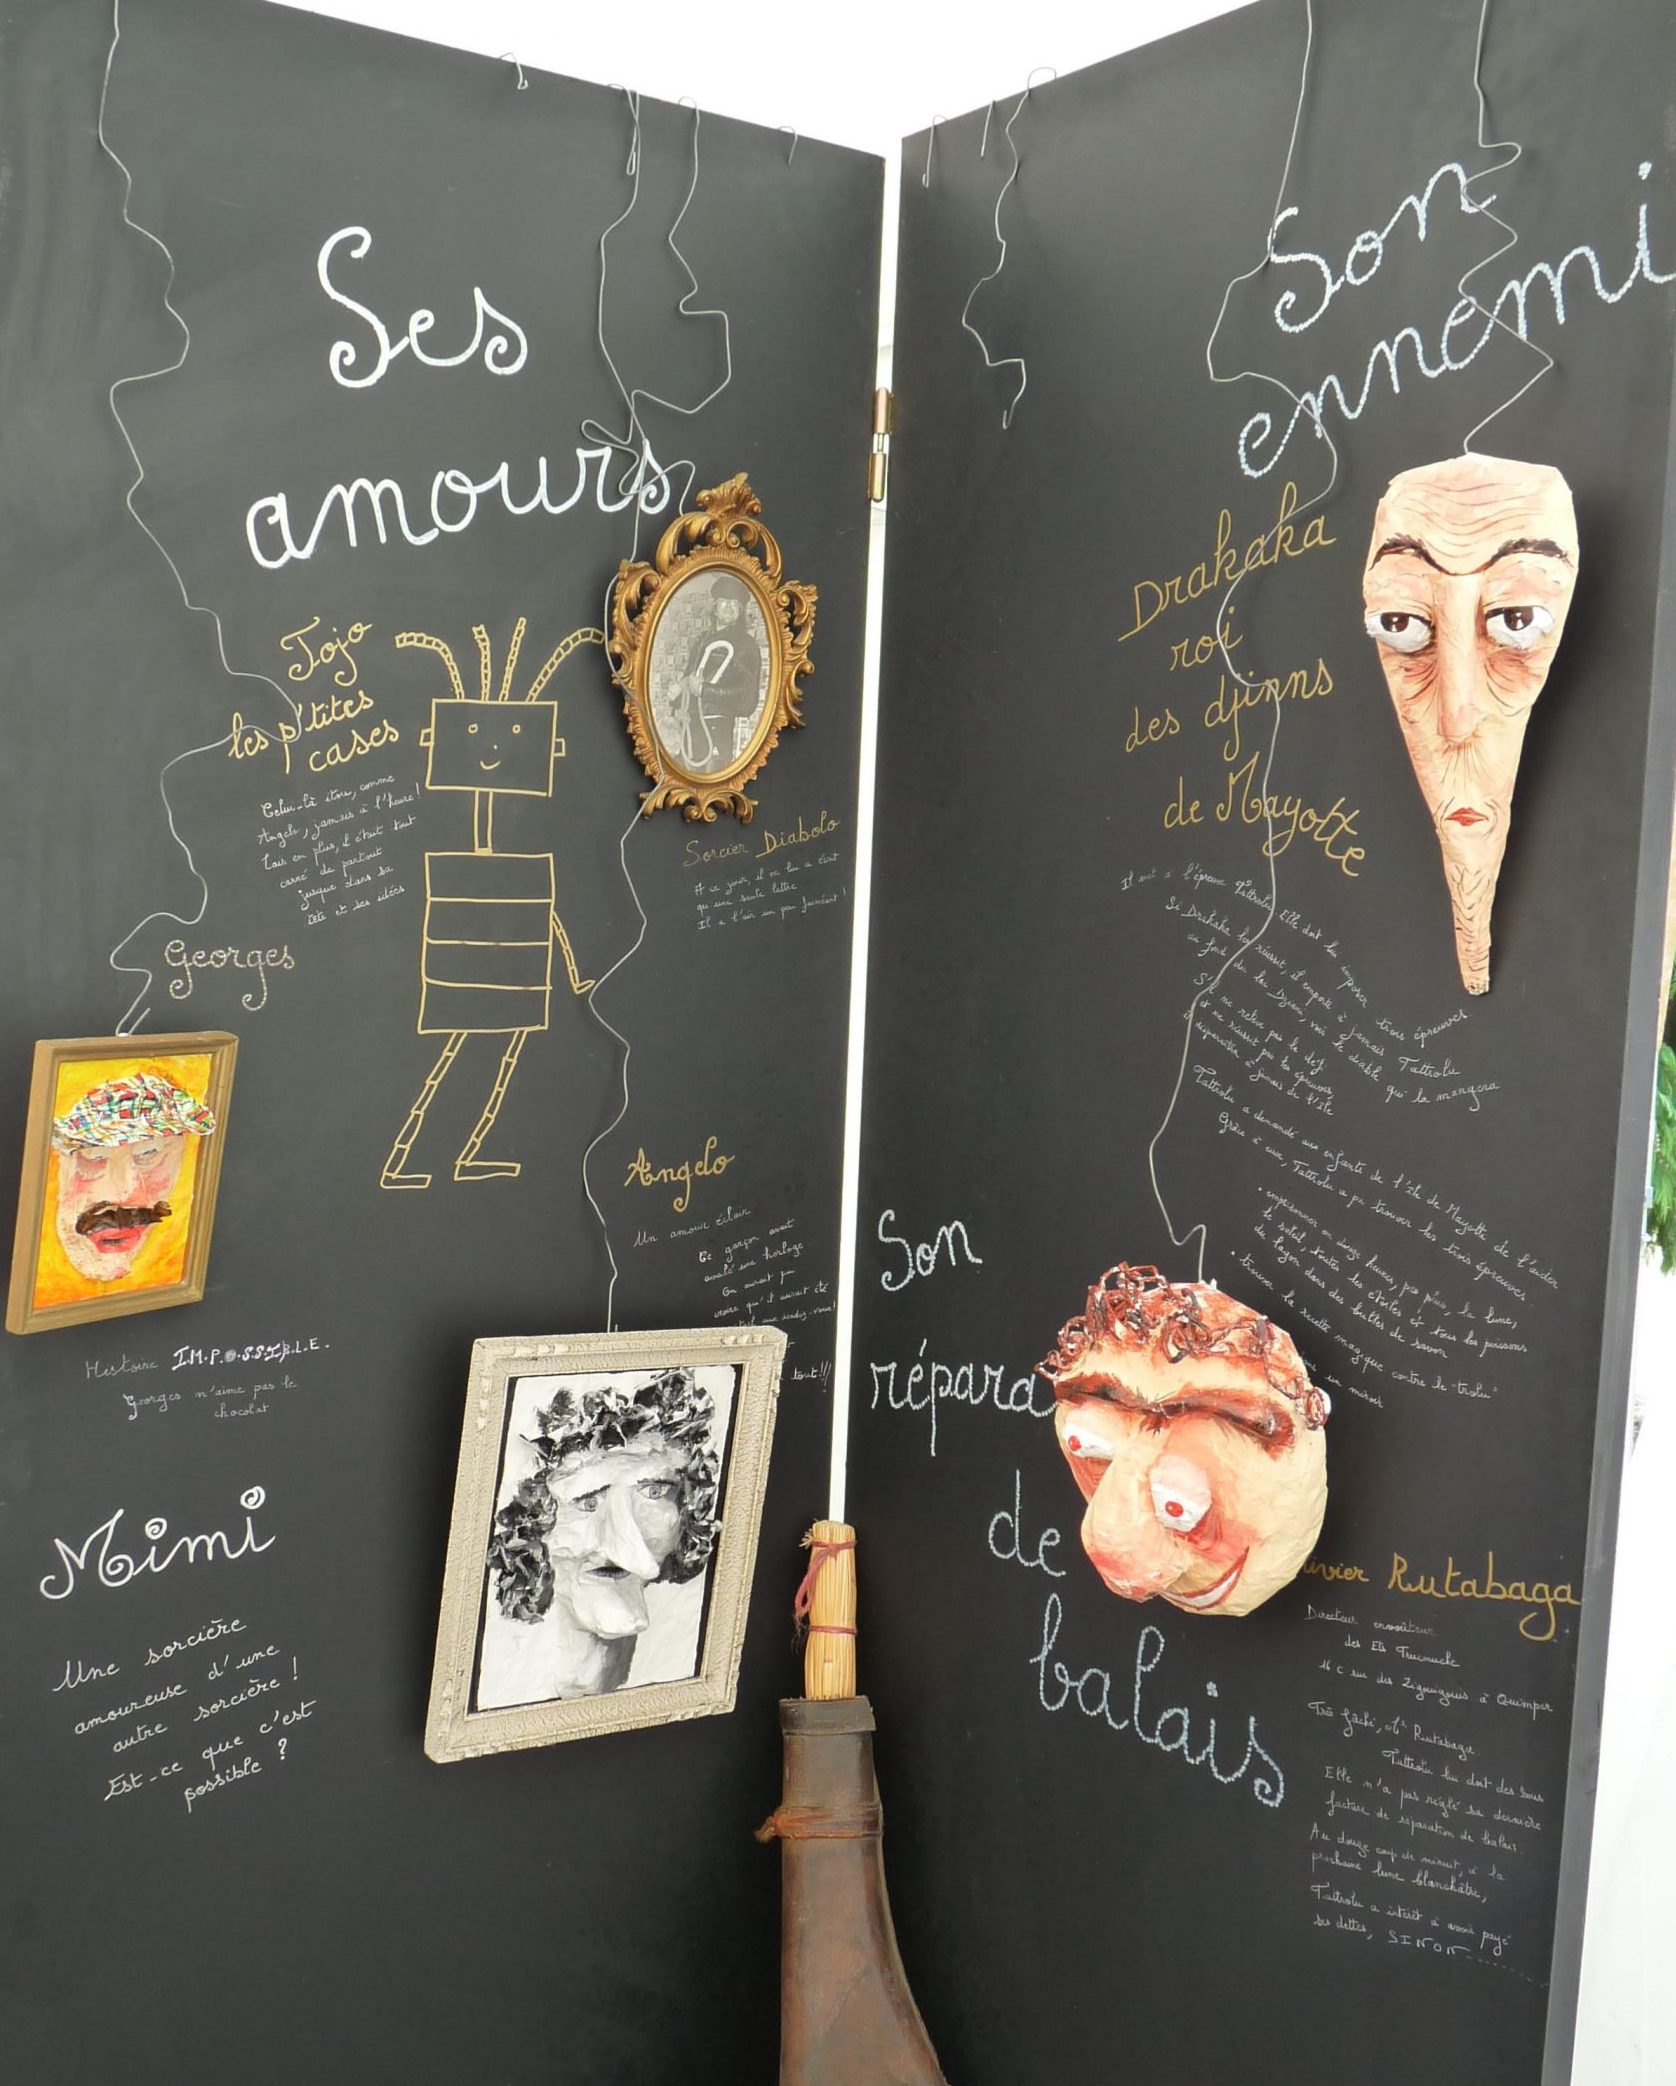 Ses
amours
Tojo
les p'tites
cases
Celui-là itou, comme
Angelo, jamais à l'heure!
Mais en plus, il était tout
carré de partout
jusque dans sa
tête et ses idées
Sorcier Diabolo
A ce jour, il ne lui a écrit
qu'une seule lettre
Il a l'air un peu fainéant!
Georges
Histoire I.M.P.O.S.S.I.B.L.E.
Georges n'aime pas le
chocolat
Angelo
Un amour éclair
Ce garçon avait
avalé une horloge
On aurait pu
croire qu'il aurait été
aux rendez-vous!
tout!!!
Mimi
Une sorcière
amoureuse d'une
autre sorcière!
Est-ce que c'est
possible?
Son
ennemi
Drakaka
roi
des djinns
de Mayotte
Il met à l'épreuve Tattrolu Elle doit lui imposer trois épreuves
Si Drakaka les réussit, il emporte à jamais Tattrolu
au fond du lac Dziani, voir le diable qui la mangera
S'il ne relève pas le défi
et ne réussit pas les épreuves,
il disparaîtra à jamais de l'île
Tattrolu a demandé aux enfants de l'île de Mayotte de l'aider
Grâce à eux, Tattrolu a pu trouver les trois épreuves
• emprisonner en douze heures, pas plus, la lune,
le soleil, toutes les étoiles et tous les poissons
du lagon dans des bulles de savon
• trouver la recette magique contre le "trolu"
dans un miroir
Son
répara
de
balais
Rutabaga
Directeur envoûteur
des Ets Trucmuche
16 C rue des Zigouigouis à Quimper
Très fâché, Mr Rutabaga
Tattrolu lui doit des sous
Elle n'a pas réglé sa dernière
facture de réparation de balais.
Au douze coup de minuit, à la
prochaine lune blanchâtre,
Tattrolu a intérêt à avoir payé
ses dettes, SINON